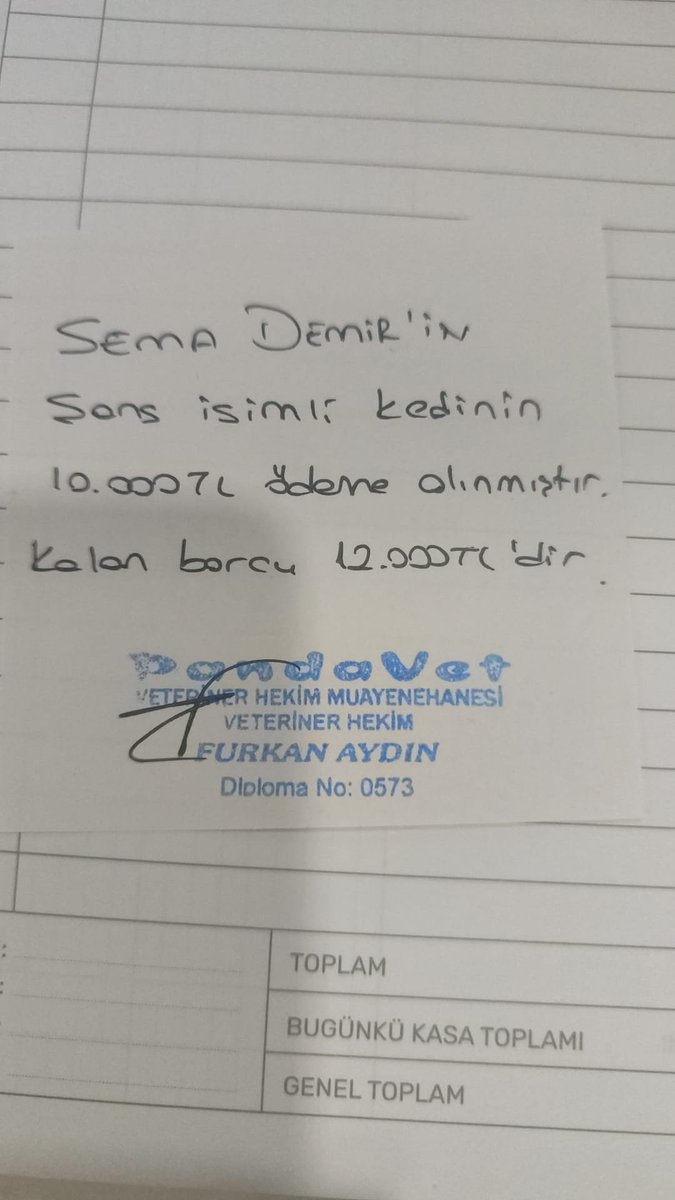 SEMA DEMİR'İN
Şans isimli kedinin
10.000TL ödeme alınmıştır.
Kalan borcu 12.000TL'dir.
PandaVet
VETERİNER HEKİM MUAYENEHANESİ
VETERİNER HEKİM
FURKAN AYDIN
Diploma No: 0573
TOPLAM
BUGÜNKÜ KASA TOPLAMI
GENEL TOPLAM